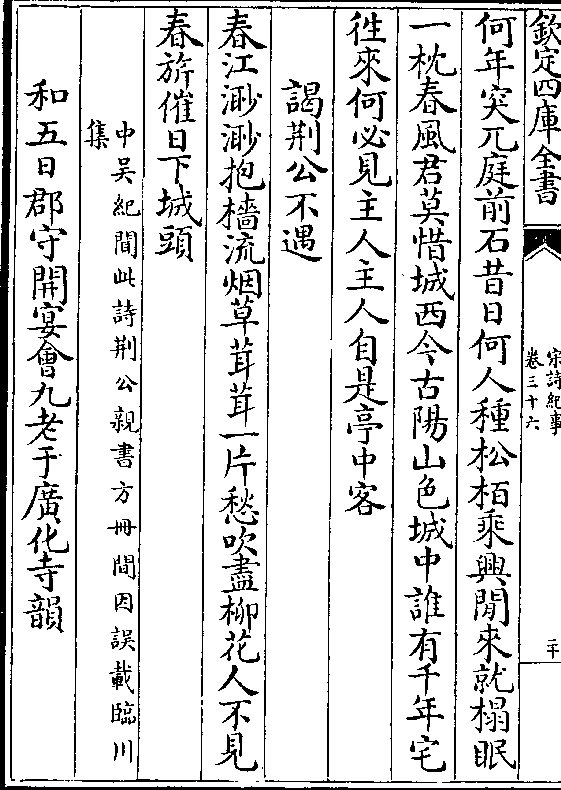 欽定四庫全書
宋詩紀事
卷三十六
二十
何年突兀庭前石昔日何人種松栢乘興閒來就榻眠
一枕春風君莫惜城西今古陽山色城中誰有千年宅
徃來何必見主人主人自是亭中客
謁荆公不遇
春江渺渺抱檣流烟草茸茸一片愁吹盡柳花人不見
春旂催日下城頭
中吳紀聞此詩荆公親書方冊間因誤載臨川
集
和五日郡守開宴會九老于廣化寺韻